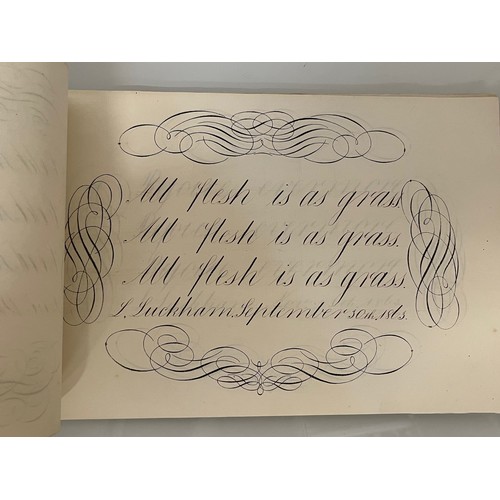 All flesh is as grass
All flesh is as grass.
All flesh is as grass.
September 30th,